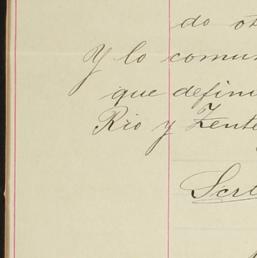 do ot
Y lo comun
que defini
Rio y Zente
Scri